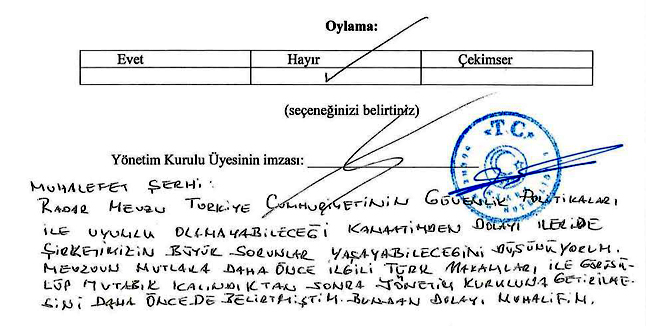 Oylama:
Evet Hayır Çekimser
(seçeneğinizi belirtiniz)
Yönetim Kurulu Üyesinin imzası:
T.C.
MUHALEFET ŞERHİ:
RADAR MEVZU TÜRKİYE CUMHURİYETİNİN GÜVENLİK POLİTİKALARI
İLE UYUMLU OLMAYABİLECEĞİ KANAATİMDEN DOLAYI İLERİDE
ŞİRKETİMİZİN BÜYÜK SORUNLAR YAŞAYABİLECEĞİNİ DÜŞÜNÜYORUM.
MEVZUUN MUTLAKA DAHA ÖNCE İLGİLİ TÜRK MAKAMLARI İLE GÖRÜŞÜ-
LÜP MUTABIK KALINDIKTAN SONRA YÖNETİM KURULUNA GETİRİLME-
SİNİ DAHA ÖNCEDE BELİRTMİŞTİM. BUNDAN DOLAYI MUHALİFİM.